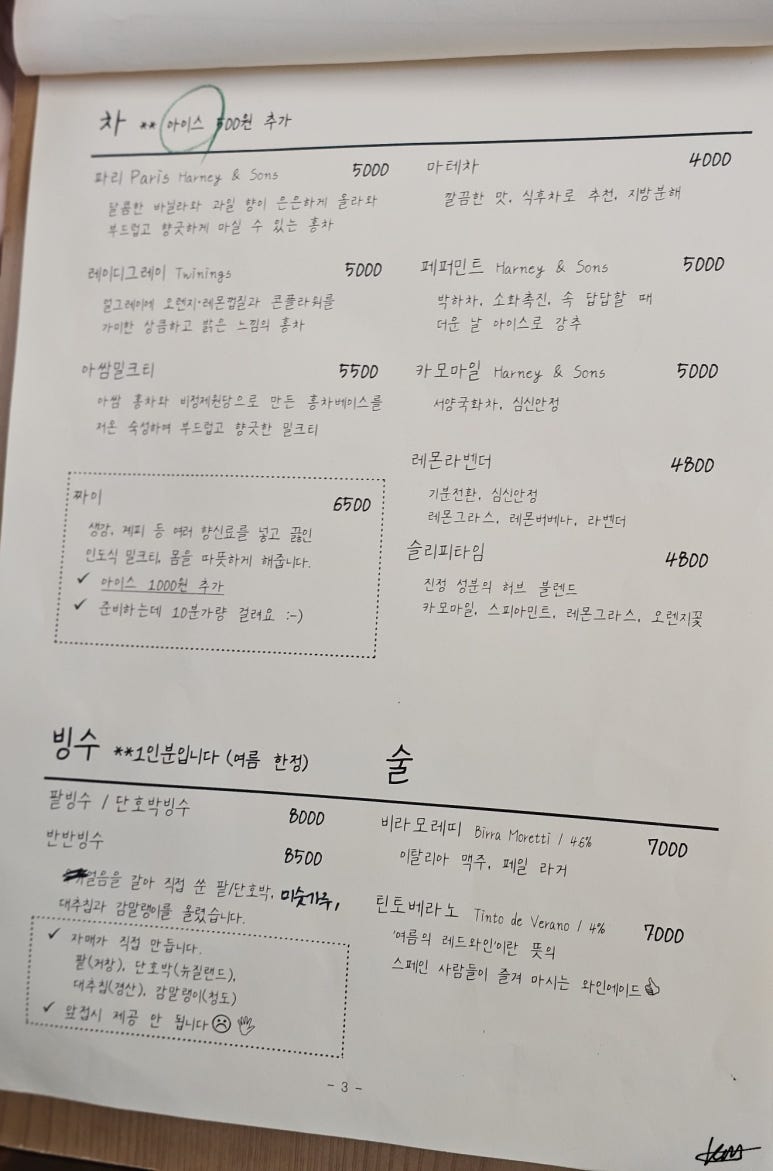 차 ** 아이스 500원 추가
파리 Paris Harney & Sons 5000
달콤한 바닐라와 과일 향이 은은하게 올라와
부드럽고 향긋하게 마실 수 있는 홍차
레이디그레이 Twinings 5000
얼그레이에 오렌지·레몬껍질과 콘플라워를
가미한 상큼하고 밝은 느낌의 홍차
아쌈밀크티 5500
아쌈 홍차와 비정제원당으로 만든 홍차베이스를
저온 숙성하여 부드럽고 향긋한 밀크티
짜이 6500
생강, 계피 등 여러 향신료를 넣고 끓인
인도식 밀크티, 몸을 따뜻하게 해줍니다.
✓ 아이스 1000원 추가
✓ 준비하는데 10분가량 걸려요 :-)
마테차 4000
깔끔한 맛, 식후차로 추천, 지방분해
페퍼민트 Harney & Sons 5000
박하차, 소화촉진, 속 답답할 때
더운 날 아이스로 강추
카모마일 Harney & Sons 5000
서양국화차, 심신안정
레몬라벤더 4800
기분전환, 심신안정
레몬그라스, 레몬버베나, 라벤더
슬리피타임 4800
진정 성분의 허브 블렌드
카모마일, 스피아민트, 레몬그라스, 오렌지꽃
빙수 **1인분입니다 (여름 한정)
팥빙수 / 단호박빙수 8000
반반빙수 8500
얼음을 갈아 직접 쑨 팥/단호박, 미숫가루,
대추칩과 감말랭이를 올렸습니다.
✓ 자매가 직접 만듭니다.
팥(거창), 단호박(뉴질랜드),
대추칩(경산), 감말랭이(청도)
✓ 앞접시 제공 안 됩니다
술
비라모레띠 Birra Moretti / 4.6% 7000
이탈리아 맥주, 페일 라거
틴토베라노 Tinto de Verano / 4% 7000
'여름의 레드와인'이란 뜻의
스페인 사람들이 즐겨 마시는 와인에이드
- 3 -